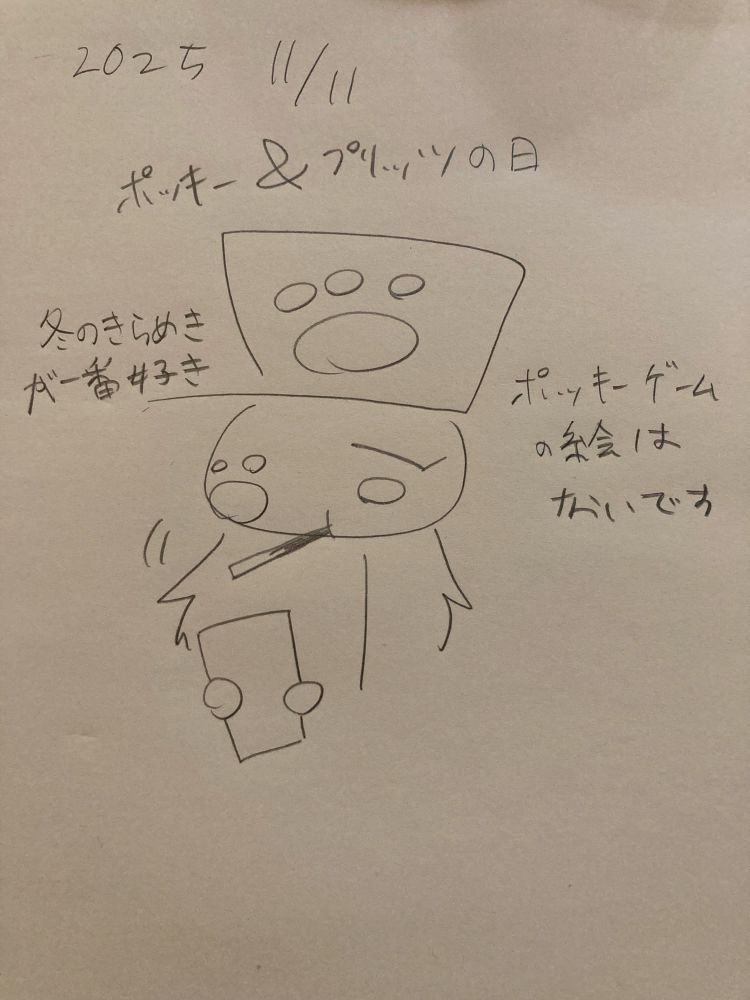 2025 11/11
ポッキー&プリッツの日
冬のきらめき
が一番好き
ポッキーゲーム
の絵は
ないです